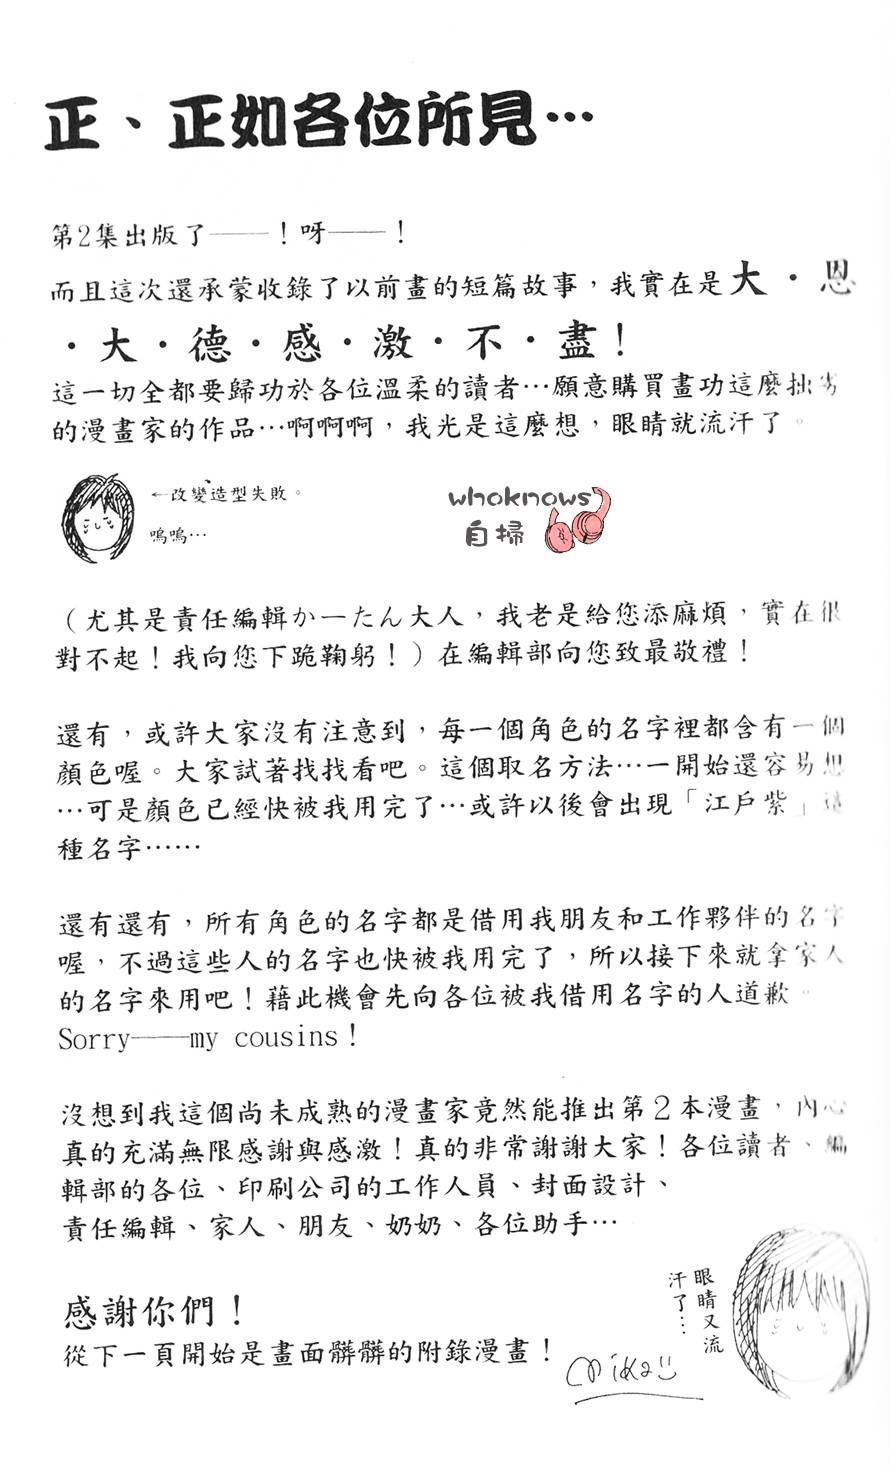 正、正如各位所見…
第2集出版了——！呀——！
而且這次還承蒙收錄了以前畫的短篇故事，我實在是大・恩
・大・德・感・激・不・盡！
這一切全都要歸功於各位溫柔的讀者…願意購買畫功這麼拙劣
的漫畫家的作品…啊啊啊，我光是這麼想，眼睛就流汗了。
←改變造型失敗。
嗚嗚…
whoknows
自掃
（尤其是責任編輯かーたん大人，我老是給您添麻煩，實在很
對不起！我向您下跪鞠躬！）在編輯部向您致最敬禮！
還有，或許大家沒有注意到，每一個角色的名字裡都含有一個
顏色喔。大家試著找找看吧。這個取名方法…一開始還容易想
…可是顏色已經快被我用完了…或許以後會出現「江戶紫」這
種名字……
還有還有，所有角色的名字都是借用我朋友和工作夥伴的名字
喔，不過這些人的名字也快被我用完了，所以接下來就拿家人
的名字來用吧！藉此機會先向各位被我借用名字的人道歉。
Sorry——my cousins！
沒想到我這個尚未成熟的漫畫家竟然能推出第２本漫畫，內心
真的充滿無限感謝與感激！真的非常謝謝大家！各位讀者、編
輯部的各位、印刷公司的工作人員、封面設計、
責任編輯、家人、朋友、奶奶、各位助手…
眼睛又流
汗了…
感謝你們！
從下一頁開始是畫面髒髒的附錄漫畫！
mika